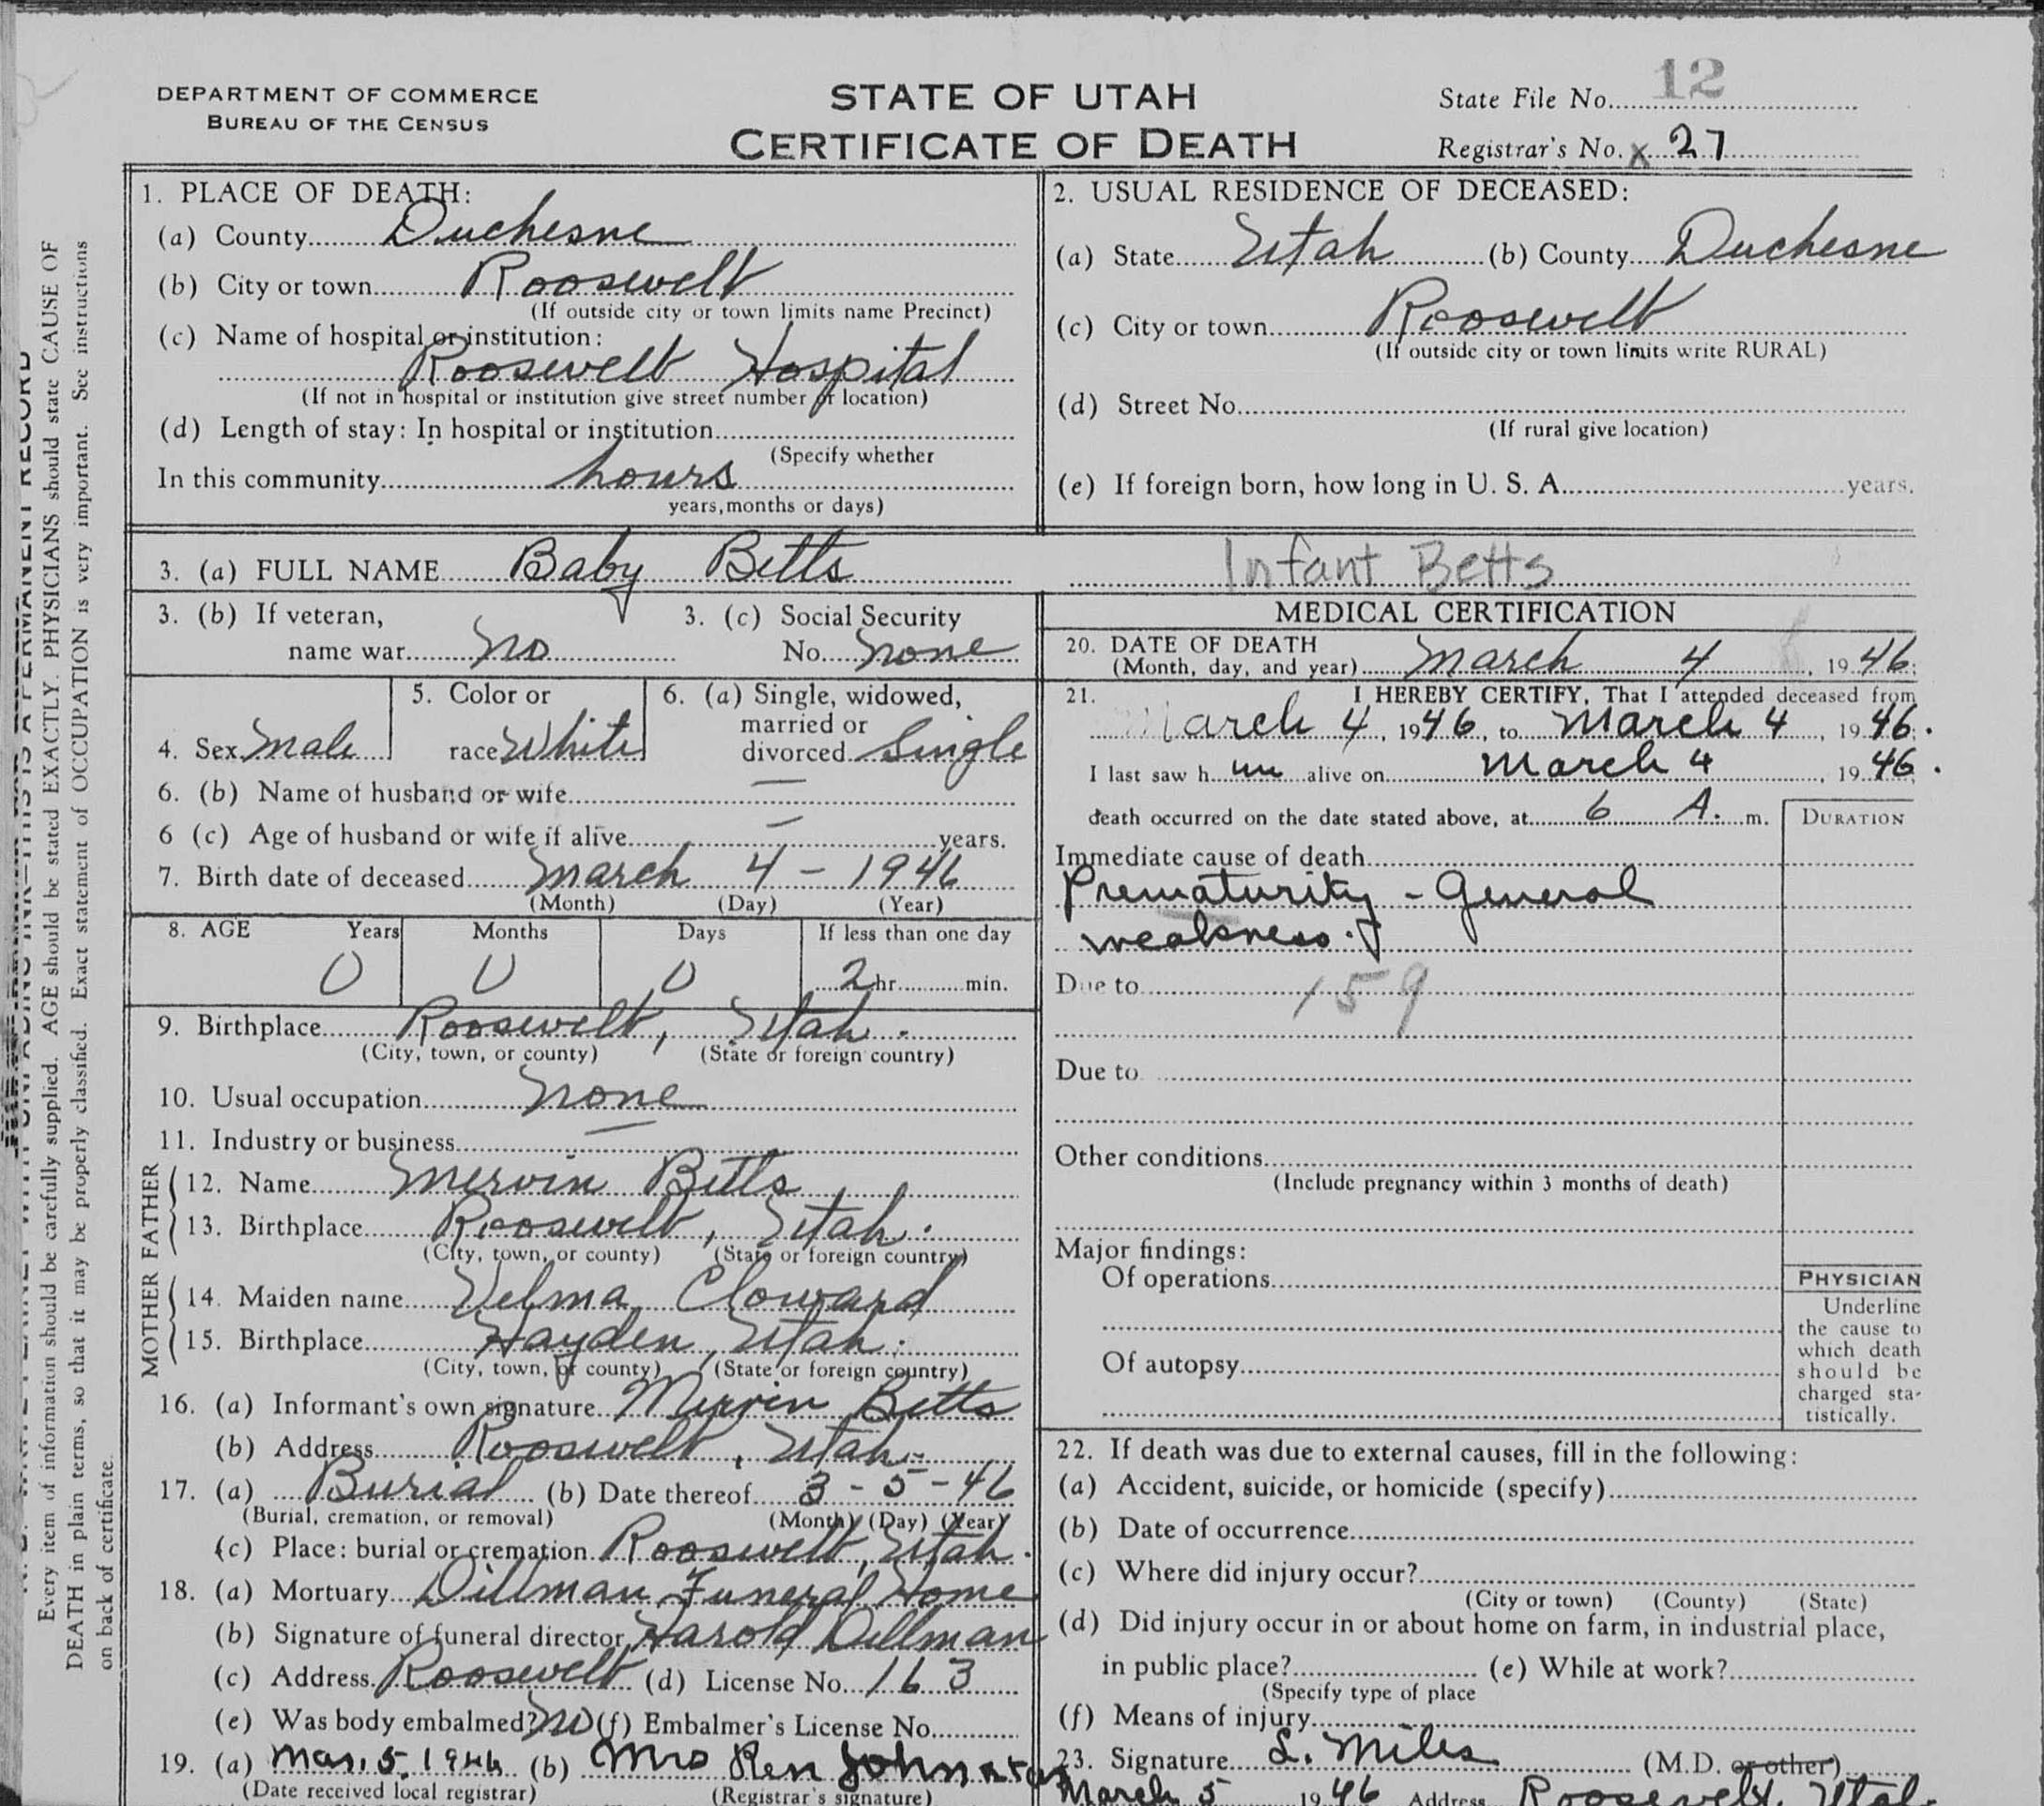 DEPARTMENT OF COMMERCE
BUREAU OF THE CENSUS
STATE OF UTAH
CERTIFICATE OF DEATH
State File No. 12
Registrar's No. x 27
1. PLACE OF DEATH:
(a) County Duchesne
(b) City or town Roosevelt
(If outside city or town limits name Precinct)
(c) Name of hospital or institution:
Roosevelt Hospital
(If not in hospital or institution give street number or location)
(d) Length of stay: In hospital or institution
(Specify whether
In this community hours
years, months or days)
2. USUAL RESIDENCE OF DECEASED:
(a) State Utah (b) County Duchesne
(c) City or town Roosevelt
(If outside city or town limits write RURAL)
(d) Street No.
(If rural give location)
(e) If foreign born, how long in U. S. A. years.
3. (a) FULL NAME Baby Betts
Infant Betts
3. (b) If veteran,
name war no
3. (c) Social Security
No. none
4. Sex Male
5. Color or
race White
6. (a) Single, widowed,
married or
divorced Single
6. (b) Name of husband or wife —
6 (c) Age of husband or wife if alive — years.
7. Birth date of deceased March 4 - 1946
(Month) (Day) (Year)
8. AGE Years Months Days If less than one day
0 0 0 2 hr. min.
9. Birthplace Roosevelt, Utah.
(City, town, or county) (State or foreign country)
10. Usual occupation none
11. Industry or business —
FATHER
12. Name Mervin Betts
13. Birthplace Roosevelt, Utah.
(City, town, or county) (State or foreign country)
MOTHER
14. Maiden name Velma Cloward
15. Birthplace Hayden, Utah.
(City, town, or county) (State or foreign country)
16. (a) Informant's own signature Mervin Betts
(b) Address Roosevelt, Utah.
17. (a) Burial (b) Date thereof 3 - 5 - 46
(Burial, cremation, or removal) (Month) (Day) (Year)
(c) Place: burial or cremation Roosevelt, Utah.
18. (a) Mortuary Dillman Funeral Home
(b) Signature of funeral director Harold Dillman
(c) Address Roosevelt (d) License No. 163
(e) Was body embalmed? No (f) Embalmer's License No.
19. (a) Mar. 5, 1946 (b) Mrs Ren Johnston
(Date received local registrar) (Registrar's signature)
MEDICAL CERTIFICATION
20. DATE OF DEATH
(Month, day, and year) March 4, 1946;
21. I HEREBY CERTIFY, That I attended deceased from
March 4, 1946, to March 4, 1946.
I last saw h im alive on March 4, 1946.
death occurred on the date stated above, at 6 A. m.
DURATION
Immediate cause of death
Prematurity - General
weakness.
Due to 159
Due to
Other conditions
(Include pregnancy within 3 months of death)
Major findings:
Of operations
Of autopsy
PHYSICIAN
Underline
the cause to
which death
should be
charged sta-
tistically.
22. If death was due to external causes, fill in the following:
(a) Accident, suicide, or homicide (specify)
(b) Date of occurrence
(c) Where did injury occur?
(City or town) (County) (State)
(d) Did injury occur in or about home on farm, in industrial place,
in public place? (e) While at work?
(Specify type of place
(f) Means of injury
23. Signature L. Miles (M.D. or other)
March 5 1946 Address Roosevelt, Utah
THIS IS A PERMANENT RECORD
Every item of information should be carefully supplied. AGE should be stated EXACTLY. PHYSICIANS should state CAUSE OF
DEATH in plain terms, so that it may be properly classified. Exact statement of OCCUPATION is very important. See instructions
on back of certificate.